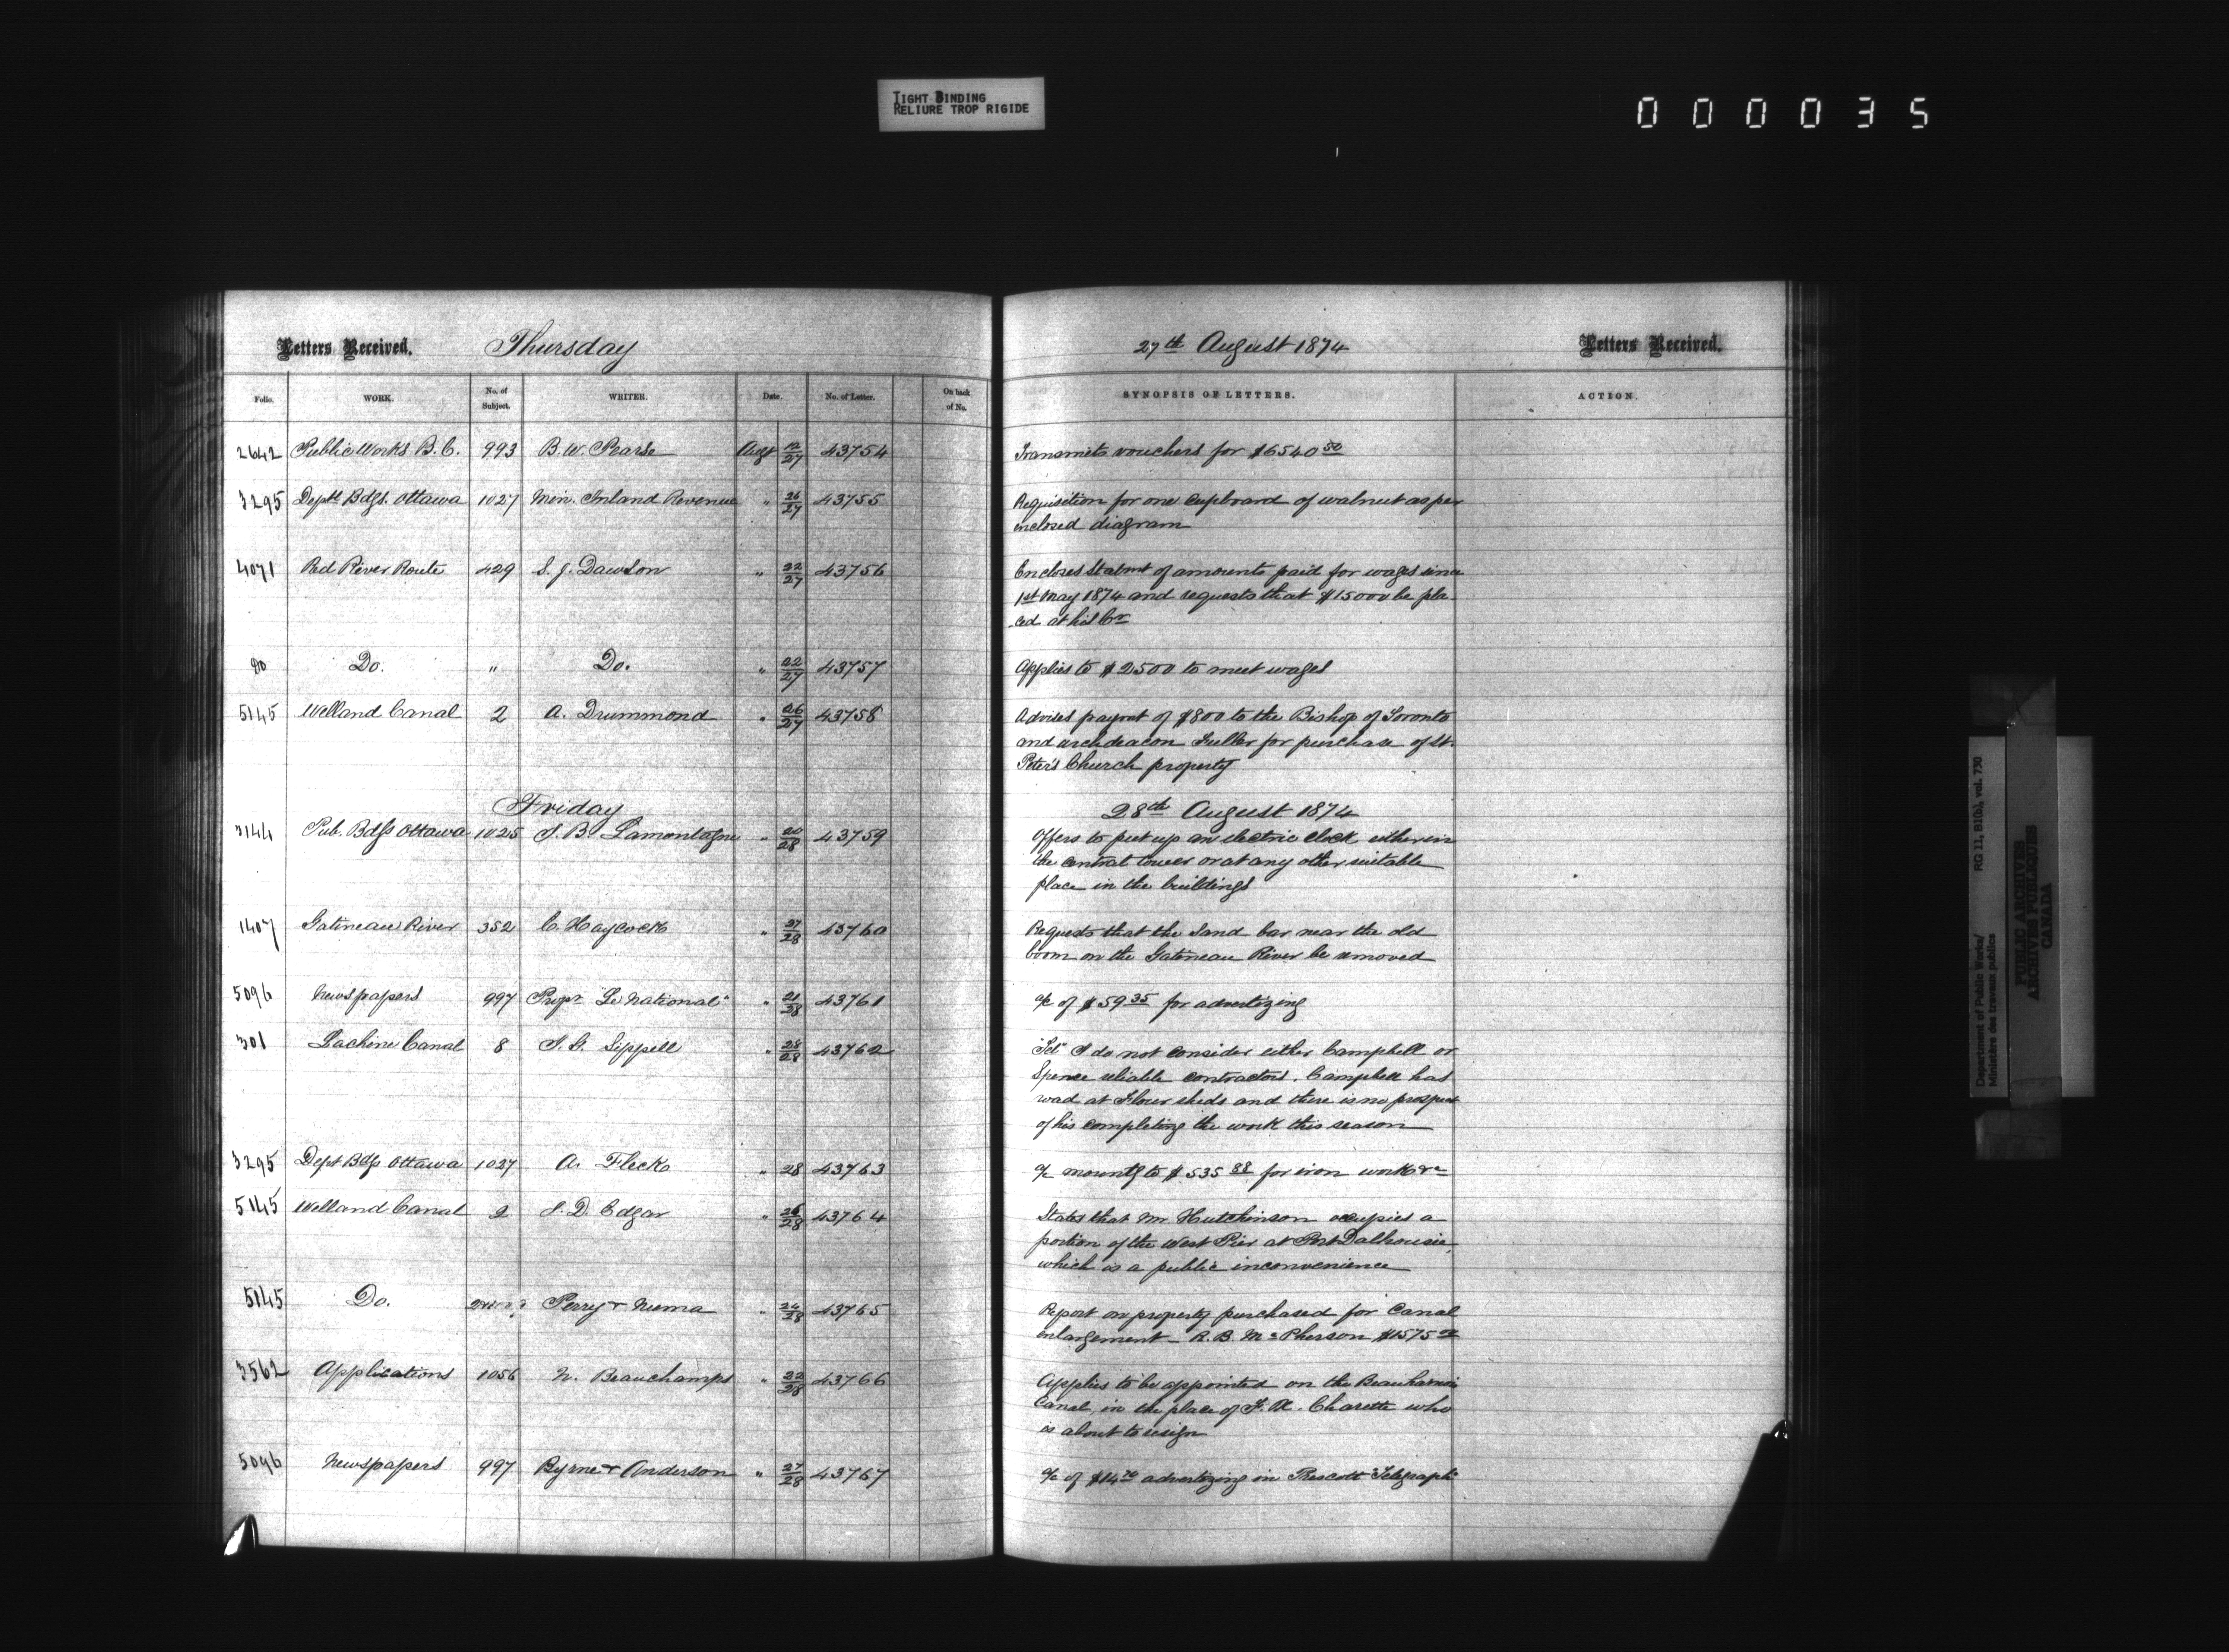 TIGHT BINDING
RELIURE TROP RIGIDE
000035
Letters Received. Thursday 27th August 1874 Letters Received.
Folio. WORK. No. of Subject. WRITER. Date. No. of Letter. On back of No. SYNOPSIS OF LETTERS. ACTION.
2642 Public Works B.C. 993 B. W. Pearse Augt 12/27 43754 Transmits vouchers for $6540 50
3295 Deptl Bdgs. Ottawa 1027 Min. Inland Revenue " 26/27 43755 Requisition for one cupboard of walnut as per
enclosed diagram
4071 Red River Route 429 S. J. Dawson " 22/27 43756 Encloses Statmt of amounts paid for wages since
1st May 1874 and requests that $15000 be pla
ced at his Cr
Do Do. " Do. " 22/27 43757 Applies to $2500 to meet wages
5145 Welland Canal 2 A. Drummond " 26/27 43758 Advises paymt of $800 to the Bishop of Toronto
and archdeacon Fuller for purchase of St.
Peter's Church property
Friday 28th August 1874
3144 Pub. Bdgs Ottawa 1025 J. B. Lamontagne " 20/28 43759 Offers to put up an electric clock either in
the central tower or at any other suitable
place in the buildings
1407 Gatineau River 352 C. Haycock " 27/28 43760 Requests that the sand bar near the old
boom on the Gatineau River be removed
5096 Newspapers 997 Propr "Le National" " 21/28 43761 a/c of $59 35 for advertizing
301 Lachine Canal 8 J. G. Sippell " 28/28 43762 "Tel" I do not consider either Campbell or
Spence reliable contractors. Campbell has
at Flour sheds and there is no prospect
of his completing the work this season
3295 Dept Bdgs Ottawa 1027 A. Fleck " 28 43763 a/c mountg to $535 88 for iron work &c
5145 Welland Canal 2 J. D. Edgar " 26/28 43764 States that Mr Hutchinson occupies a
portion of the West Pier at Port Dalhousie,
which is a public inconvenience
5145 Do. Perry & Numa " 24/28 43765 Report on property purchased for Canal
enlargement _ R. B. McPherson $1575 00
3562 Applications 1056 N. Beauchamps " 22/28 43766 Applies to be appointed on the Beauharnois
Canal, in the place of F. X. Charette who
is about to resign
5096 Newspapers 997 Byrne & Anderson " 27/28 43767 a/c of $14 70 advertizing in Prescott "Telegraph"
Department of Public Works/
Ministère des travaux publics
RG 11, B1(b), vol. 730
PUBLIC ARCHIVES
ARCHIVES PUBLIQUES
CANADA